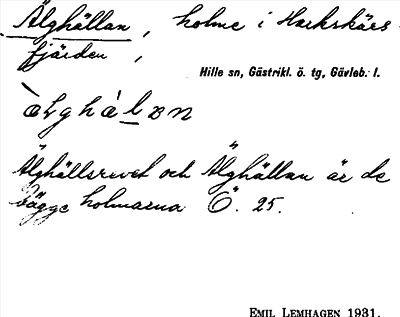 Älghällan, holme i Harkskärs-
fjärden,
Hille sn, Gästrikl. ö. tg, Gävleb. l.
Älghällsrevet och Älghällan är de
bägge holmarna Ö. 25.
EMIL LEMHAGEN 1931.